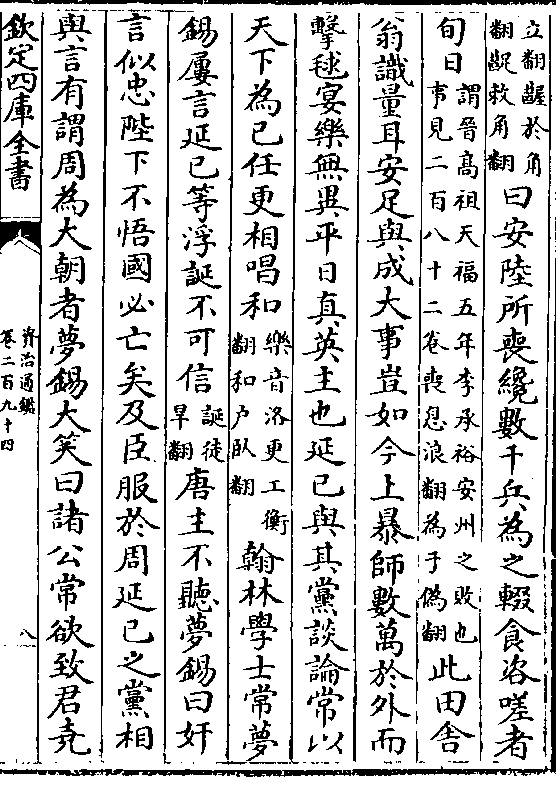 立翻齷於角
翻齪救角翻
曰安陸所喪纔數千兵為之輟食咨嗟者
旬日
謂晉高祖天福五年李承裕安州之敗也
事見二百八十二卷喪息浪翻為于偽翻
此田舍
翁識量耳安足與成大事豈如今上暴師數萬於外而
擊毬宴樂無異平日真英主也延已與其黨談論常以
天下為已任更相唱和
樂音洛更工衡
翻和户臥翻
翰林學士常夢
錫屢言延已等浮誕不可信
誕徒
旱翻
唐主不聽夢錫曰奸
言似忠陛下不悟國必亡矣及臣服於周延已之黨相
與言有謂周為大朝者夢錫大笑曰諸公常欲致君堯
欽定四庫全書
資治通鑑
卷二百九十四
八